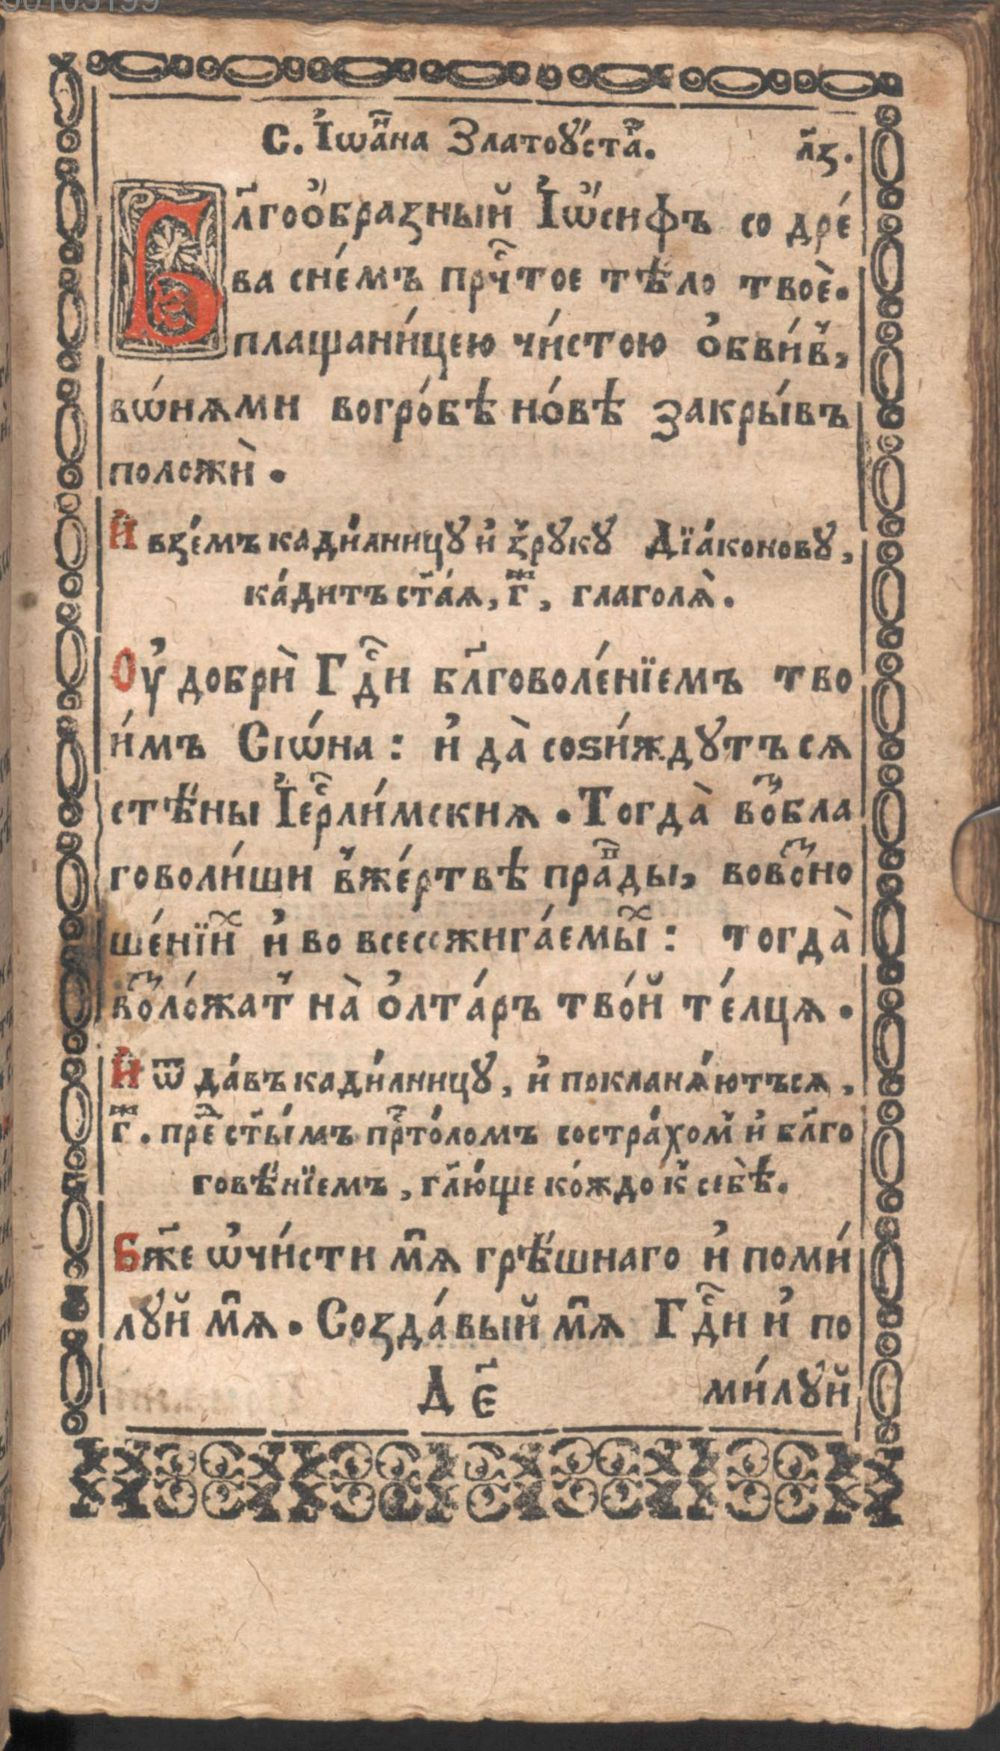 С. І҆ѡа́нⷩа Златоꙋ́стаⷢ. л҃з.
Бл҃гоѡ҆́бразный І҆ѡ҆́сифъ со дре́
ва сне́мъ прⷱ҇тое тѣ́ло твоѐ.
плащани́цею чи́стою ѻ҆бви́в̾,
вѡ́нѧми вогро́бѣ но́вѣ закры́въ
положѝ.
И҆ взе́мъ кади́лницꙋ и҆з̾рꙋкꙋ Дїа́коновꙋ,
ка́дитъ ст҃а́ѧ, г҃ⷤ, глаголѧ̀.
Оу҆ добрѝ Гдⷭ҇и бл҃говоле́нїемъ тво
и́мъ Сіѡ́на : и҆ да̀ соѕи́ждꙋтъсѧ
стѣ́ны І҆ерⷭ҇ли́мскиѧ . Тогда̀ воⷥбла
говоли́ши в̾же́ртвѣ праⷡды, вовоⷥно
ше́нїиⷯ и҆ во всесожига́емыⷯ : тогда̀
воⷥло́жат̾ на̀ ѻ҆лта́ръ тво́й те́лцѧ .
И҆ ѿ да́въ кади́лницꙋ, и҆ покланѧ́ютъсѧ ,
г҃ⷤ . преⷣ ст҃ы́мъ прⷭ҇то́ломъ состра́хом̾ и҆ бл҃го
говѣ́нїемъ , гл҃ю́ще ко́ждо к̾ себѣ̀.
Бж҃е ѡ҆чи́сти мѧ̀ грѣ́шнаго и҆ поми́
лꙋй мѧ̀ . Созда́вый мѧ̀ Гдⷭ҇и и҆ по
Д є҃ ми́лꙋй